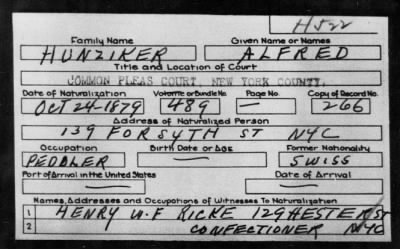 H522
Family Name Given Name or Names
HUNZIKER ALFRED
Title and Location of Court
COMMON PLEAS COURT, NEW YORK COUNTY.
Date of Naturalization Volume or Bundle No. Page No. Copy of Record No.
OCT 24-1879 489 — 266
Address of Naturalized Person
139 FORSYTH ST NYC
Occupation Birth Date or Age Former Nationality
PEDDLER — SWISS
Port of Arrival in the United States Date of Arrival
— —
Names, Addresses and Occupations of Witnesses To Naturalization
1 HENRY W.F RICKE 129 HESTER ST
2 CONFECTIONER NYC